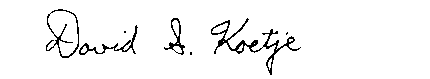 David S. Koetje